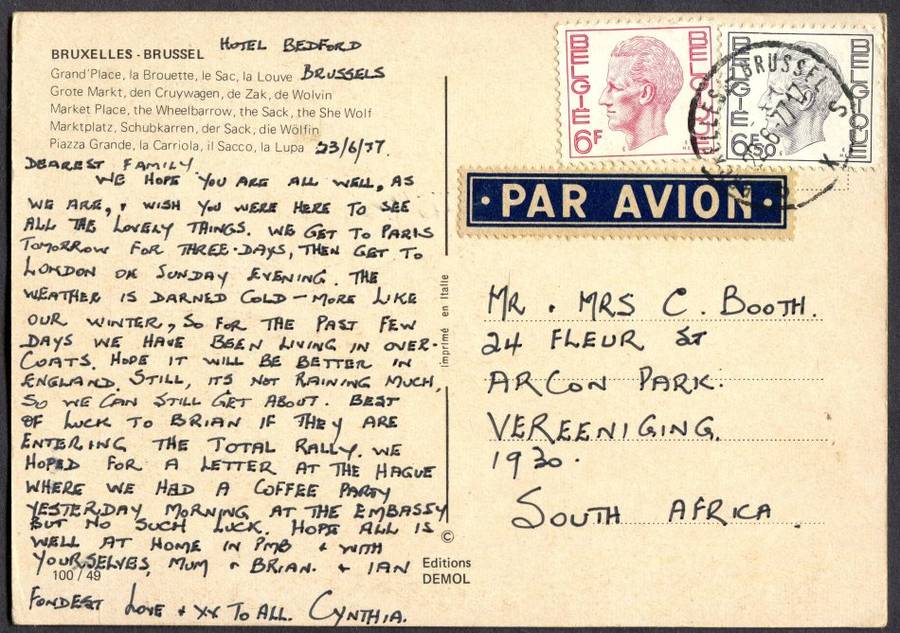 HOTEL BEDFORD
BRUSSELS
BRUXELLES - BRUSSEL
Grand'Place, la Brouette, le Sac, la Louve
Grote Markt, den Cruywagen, de Zak, de Wolvin
Market Place, the Wheelbarrow, the Sack, the She Wolf
Marktplatz, Schubkarren, der Sack, die Wölfin
Piazza Grande, la Carriola, il Sacco, la Lupa
23/6/77.
DEAREST FAMILY
WE HOPE YOU ARE ALL WELL, AS
WE ARE, + WISH YOU WERE HERE TO SEE
ALL THE LOVELY THINGS. WE GET TO PARIS
TOMORROW FOR THREE-DAYS, THEN GET TO
LONDON ON SUNDAY EVENING. THE
WEATHER IS DARNED COLD – MORE LIKE
OUR WINTER, SO FOR THE PAST FEW
DAYS WE HAVE BEEN LIVING IN OVER-
COATS. HOPE IT WILL BE BETTER IN
ENGLAND. STILL, ITS NOT RAINING MUCH,
SO WE CAN STILL GET ABOUT. BEST
OF LUCK TO BRIAN IF THEY ARE
ENTERING THE TOTAL RALLY. WE
HOPED FOR A LETTER AT THE HAGUE
WHERE WE HAD A COFFEE PARTY
YESTERDAY MORNING AT THE EMBASSY
BUT NO SUCH LUCK. HOPE ALL IS
WELL AT HOME IN PMB + WITH
YOURSELVES, MUM + BRIAN. + IAN
FONDEST LOVE + XX TO ALL. CYNTHIA.
100 / 49
imprimé en Italie
©
Editions
DEMOL
BELGIE
BELGIQUE
6F
BELGIE
BELGIQUE
6F5
BRUSSEL
PAR AVION
MR + MRS C. BOOTH.
24 FLEUR ST
ARCON PARK.
VEREENIGING.
1930.
SOUTH AFRICA.